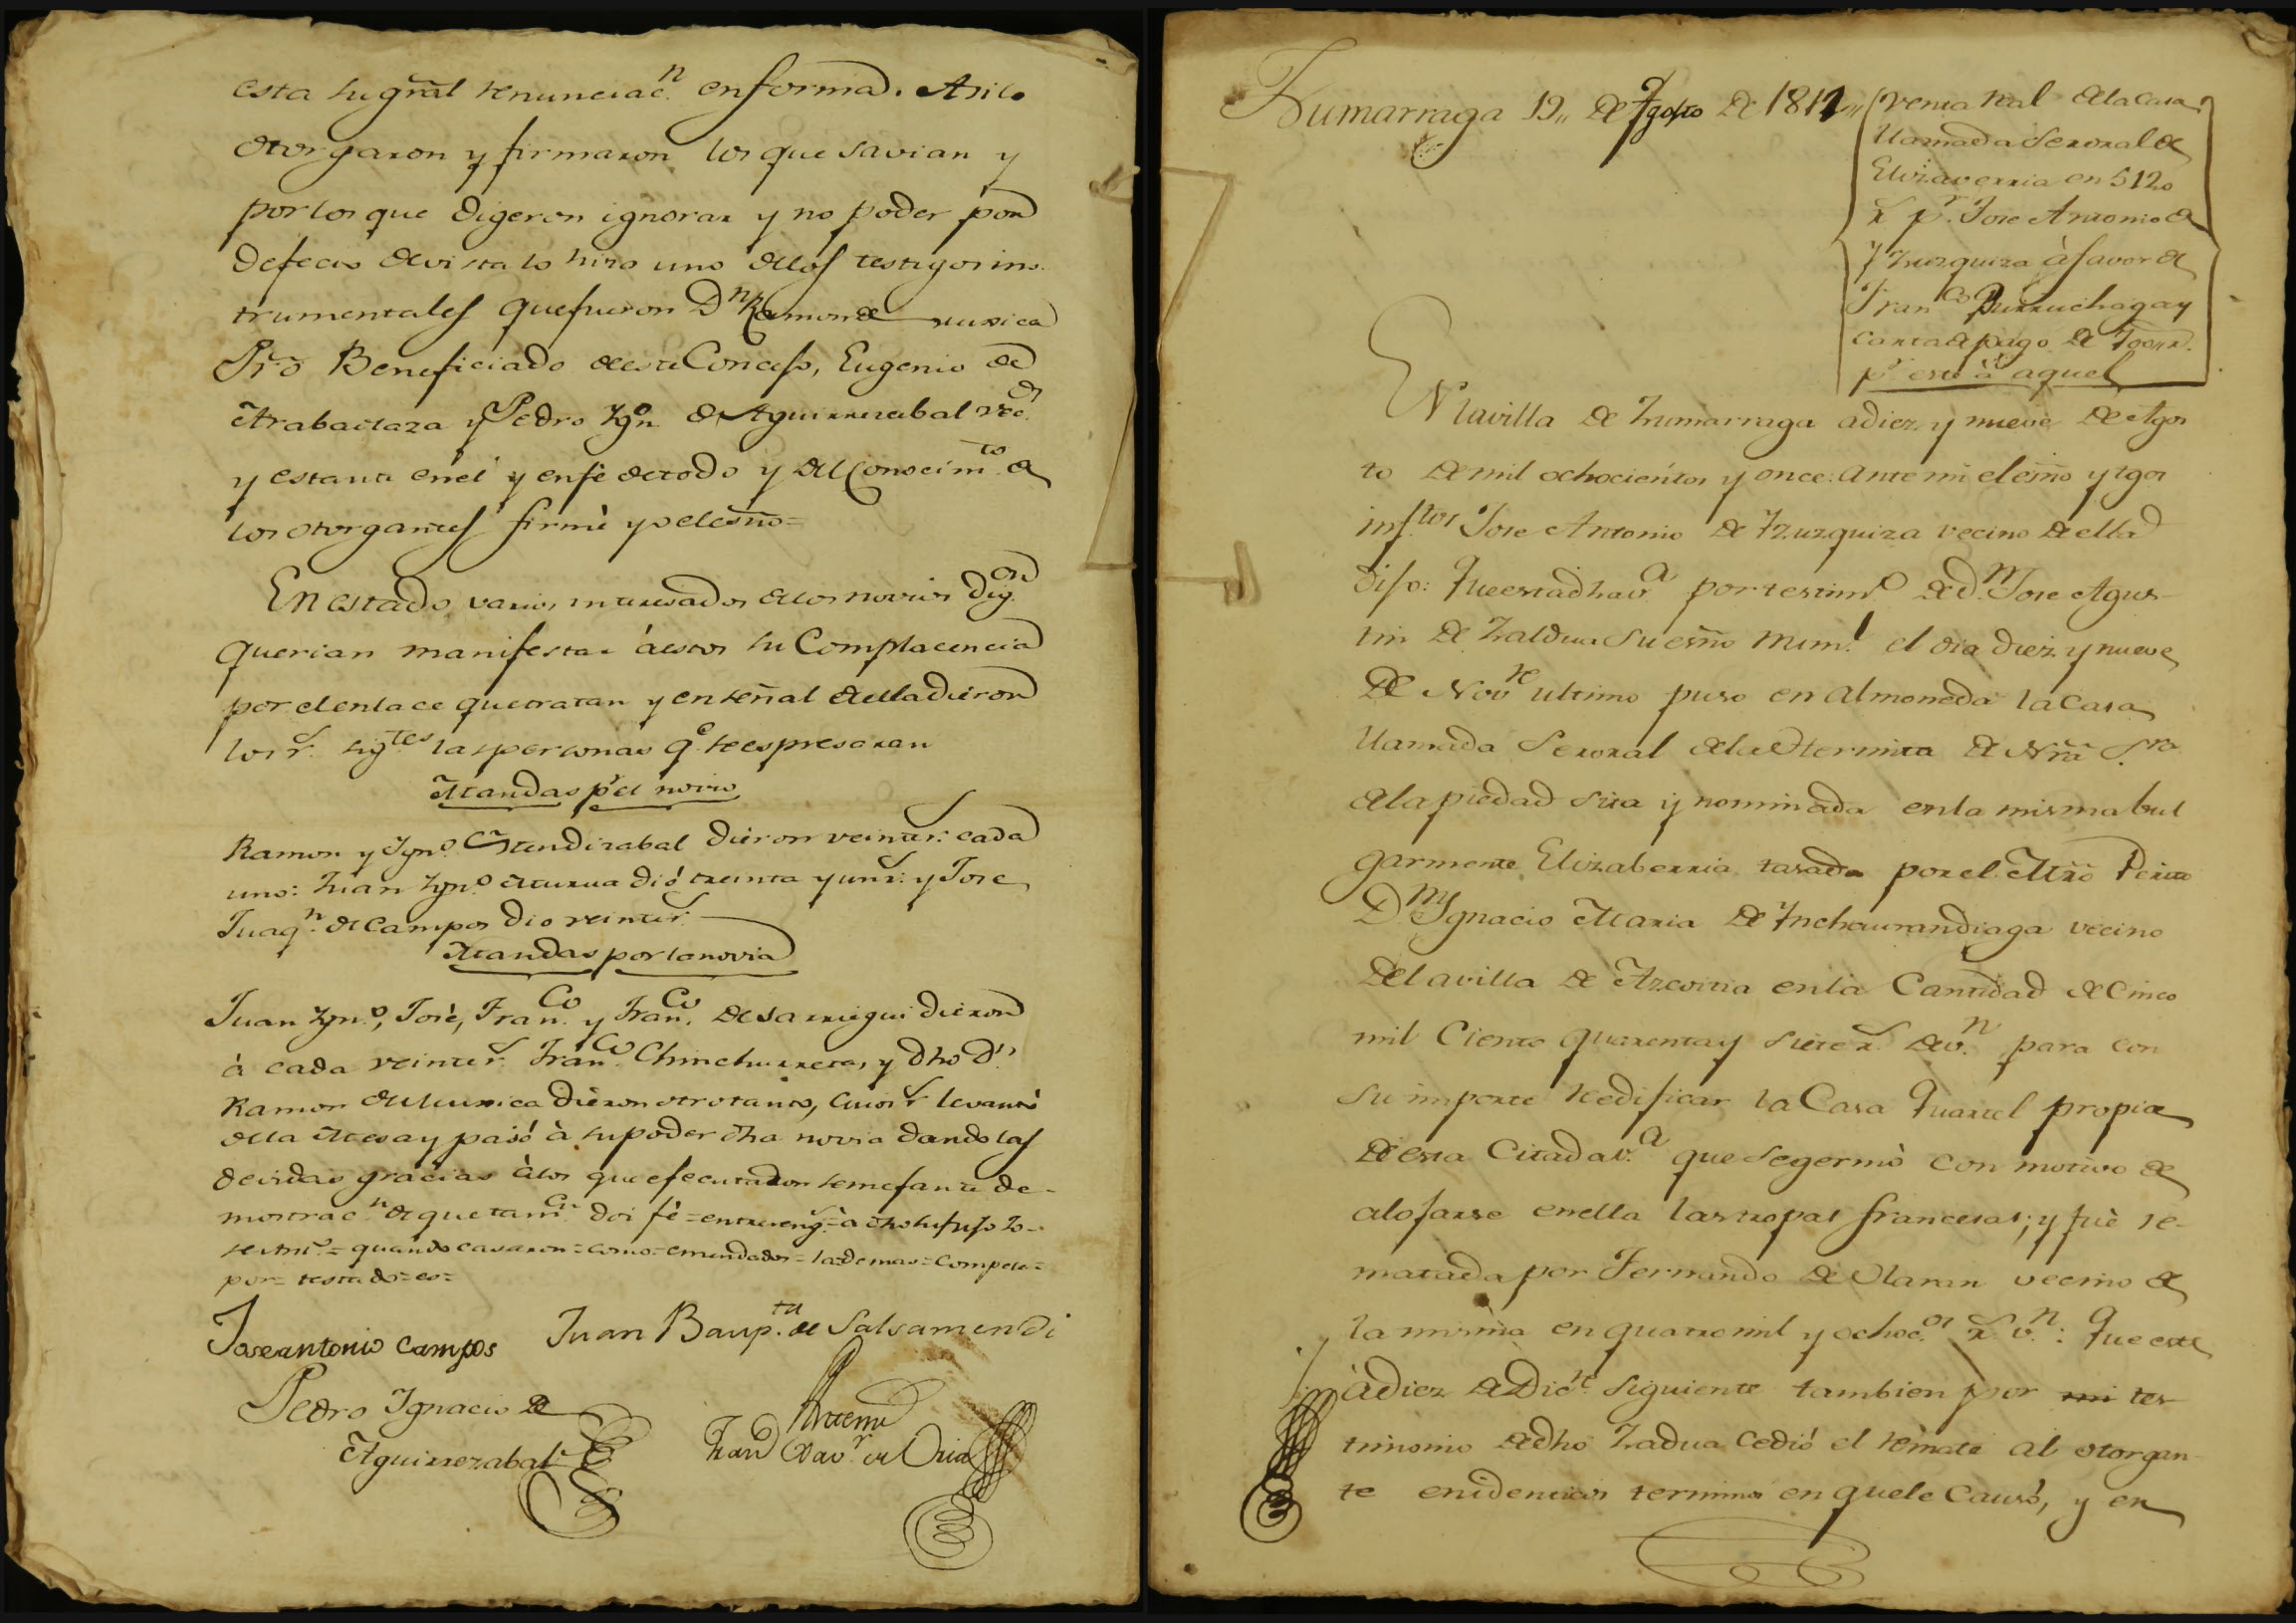 esta su grāl renunciac.ⁿ en forma. Asi lo
otorgaron y firmaron los que savian y
por los que digeron ignorar y no poder por
defecto de vista lo hizo uno de los testigos ins-
trumentales que fueron Dⁿ Ramon de
Pr̄ō Beneficiado de este Concejo, Eugenio de
y Pedro Ygn.º de Aguirrezabal vec.ˢ
y estante en él y en fé de todo y del conocim.ᵗᵒ de
los otorgantes firmé yo el esn̄o=
En estado varios interesados de los novios dig.ᵒⁿ
querian manifestar á estos su Complacencia
por el enlace que tratan y en señal de ella dieron
los r.ˢ sig.ᵗᵉˢ las personas q.ᵉ se espresaran
Mandas p.r el novio
Ramon y Ygn.º Mendizabal dieron veinte r.ˢ cada
uno: Juan Ygn.º dió treinta y un r.ˢ y Jose
Juaq.ⁿ de Campos dio veinte r.ˢ
Mandas por la novia
Juan Ygn.º, José, Fran.ᶜᵒ y Fran.ᶜᵒ de Sarriegui dieron
à cada veinte r.ˢ Fran.ᶜᵒ Chinchurreta, y dho D.ⁿ
Ramon de dieron otro tanto, cuios r.ˢ levantó
de la Mesa y pasó à su poder dha novia dando las
devidas gracias à los que efecutaron semefante de-
mostrac.ⁿ de que tamv.ⁿ doi fé = entrereng.ˢ = à dho su
= quando casaron = como = emendados = la = demas = compete =
por = testado = es =
Jose antonio Campos Juan Baup.ᵗᵃ de Salsamendi
Pedro Ignacio de
Aguirrezabal
Ante mi
Fran.ᶜᵒ Xav.ʳ de Oria
Zumarraga 19,, de Agosto de 1811,,
Venta Real de la casa
llamada Seroral de
Elizaverria en 5120
r.ˢ p.ʳ Jose Antonio de
Yzuzquiza à favor de
Fran.ᶜᵒ Purruchaga y
carta de pago de
p.ʳ este à aquel
En la villa de Zumarraga a diez y nueve de Agos
to de mil ochocientos y once: ante mi el esn̄o y tgos
insf.ᵗᵒˢ Jose Antonio de Yzuzquiza vecino de ella
difo: Que esta dha v.ᵃ por testim.º de D.ⁿ Jose Agus-
tin de Zaldua su esn̄o num.ˡ el dia diez y nueve
de Nov.ʳᵉ ultimo puso en almoneda la casa
llamada Seroral de la Hermita de Nr̄ā S.ʳᵃ
de la piedad sita y nominada en la misma bul
garmente Elizaberria tasada por el Mr̄ō Perito
D.ⁿ Ygnacio Maria de Ynchaurandiaga vecino
de la villa de Azcoitia en la Cantidad de Cinco
mil Ciento quarenta y siete r.ˢ de v.ⁿ para con
su importe redificar la Casa Quartel propia
de esta Citada v.ᵃ que se con motivo de
alofarse en ella las tropas francesas; y fué re-
matada por Fernando de Olaran vecino de
la misma en quatro mil y ochoc.ᵒˢ r.ˢ v.ⁿ: Que este
à diez de Dic.ʳᵉ siguiente tambien por mi tes
timonio de dho Zadua cedió el rémate al otorgan-
te en identicos terminos en que le causó, y en